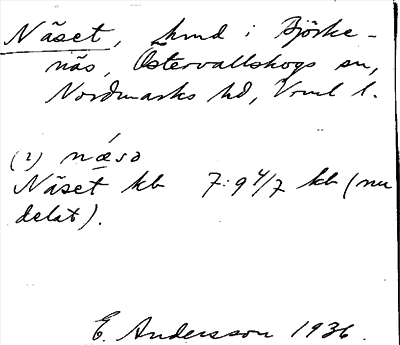 Näset, hmd i Björke-
näs, Östervallskogs sn,
Nordmarks hd, Vrml l.
(2) nǽsə
Näset kb 7:9 4/7 kb (nu
delat).
E. Andersson 1936.